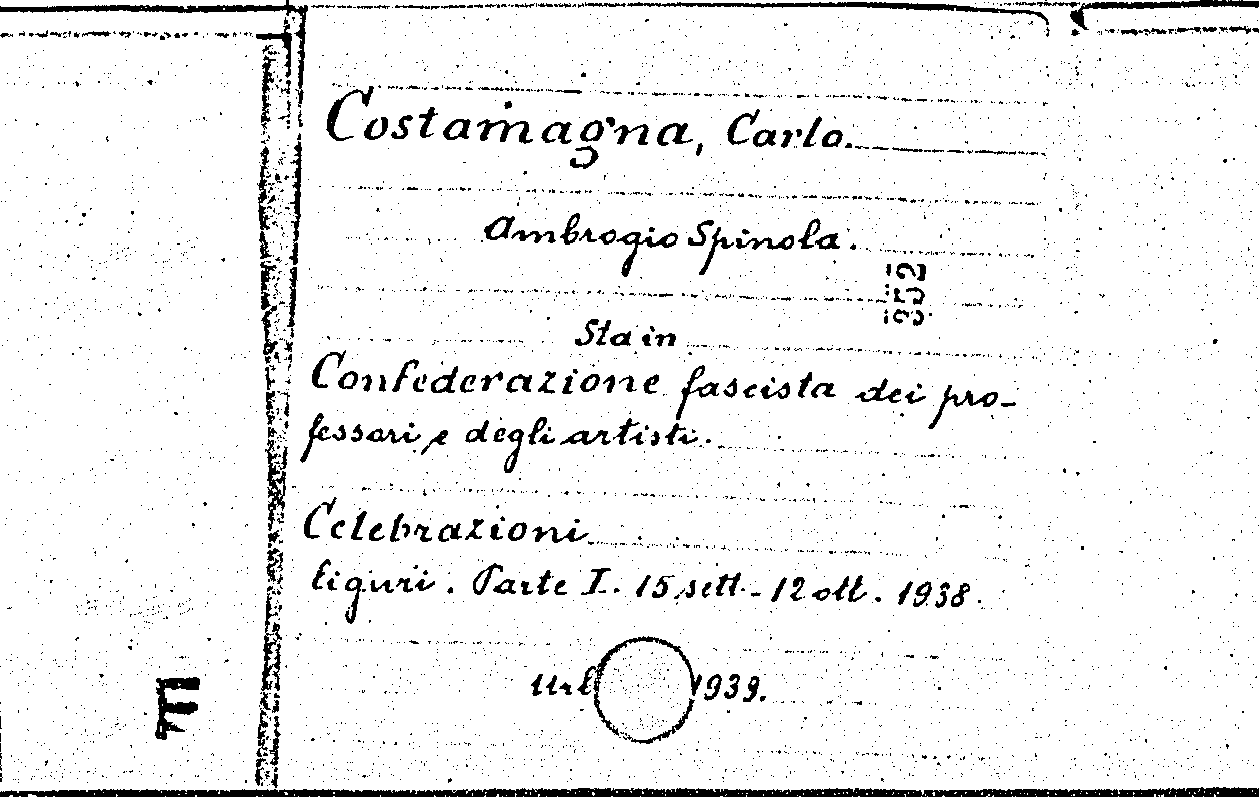 Costamagna, Carlo.
Ambrogio Spinola.
352
Sta in
Confederazione fascista dei pro-
fessori e degli artisti.
Celebrazioni
liguri. Parte I. 15 sett.- 12 ott. 1938.
Urb 1939.
E